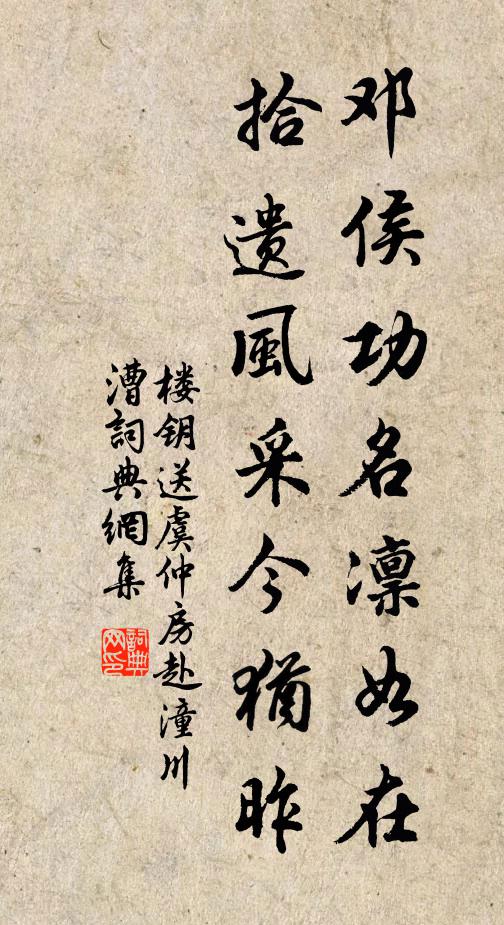 邓侯功名凛如在
拾遗風采今犹昨
楼钥送虞仲房赴潼川
漕詞典網集
詞典
网印